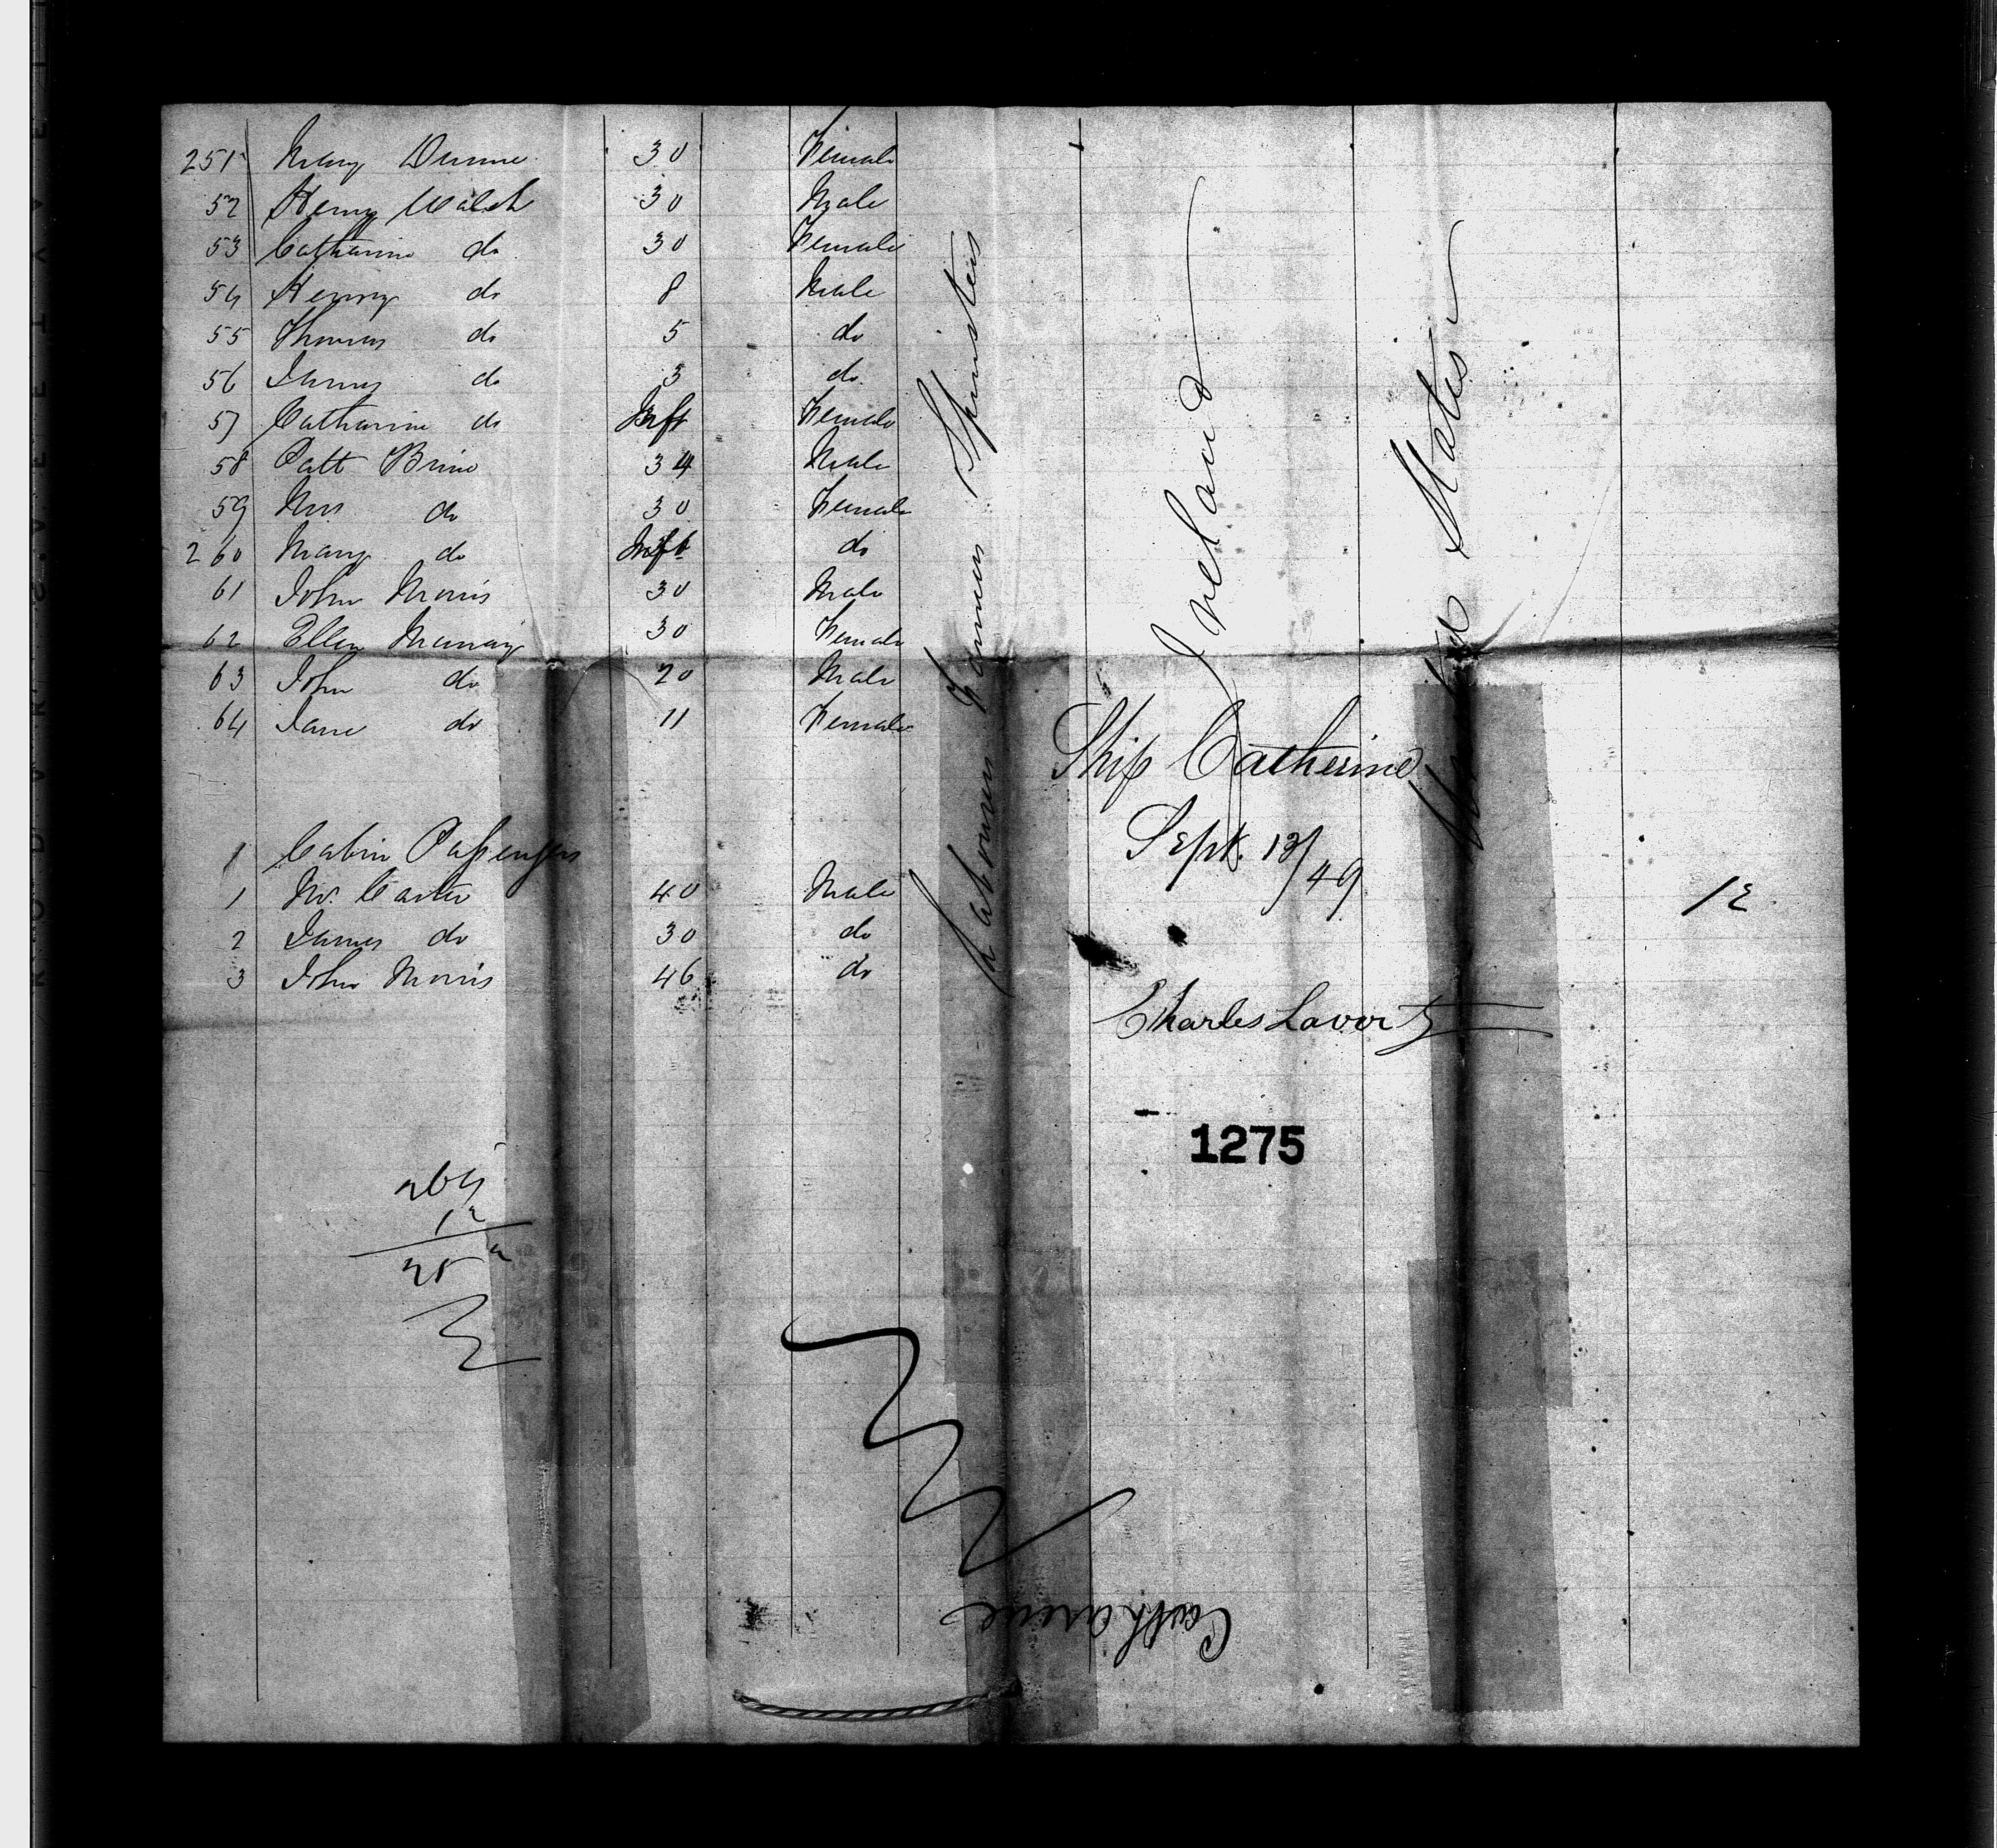 251 Mary Dunne 30 Female
52 Henry Walsh 30 Male
53 Catharine do 30 Female
54 Henry do 8 Male
55 Thomas do 5 do
56 James do 3 do
57 Catharine do Inft Female
58 Patt Brine 34 Male
59 Mrs do 30 Female
260 Mary do Inft do
61 John Morris 30 Male
62 Ellen 30 Female
63 John do 20 Male
64 Jane do 11 Female
Labourers Farmers Spinsters
Ireland
United States
Ship Catherine
Sept. 13/49
1 Cabin Passengers
1 Mr. Carter 40 Male
2 James do 30 do
3 John Morris 46 do
12
Charles Laverty
1275
264
12
252
Catharine